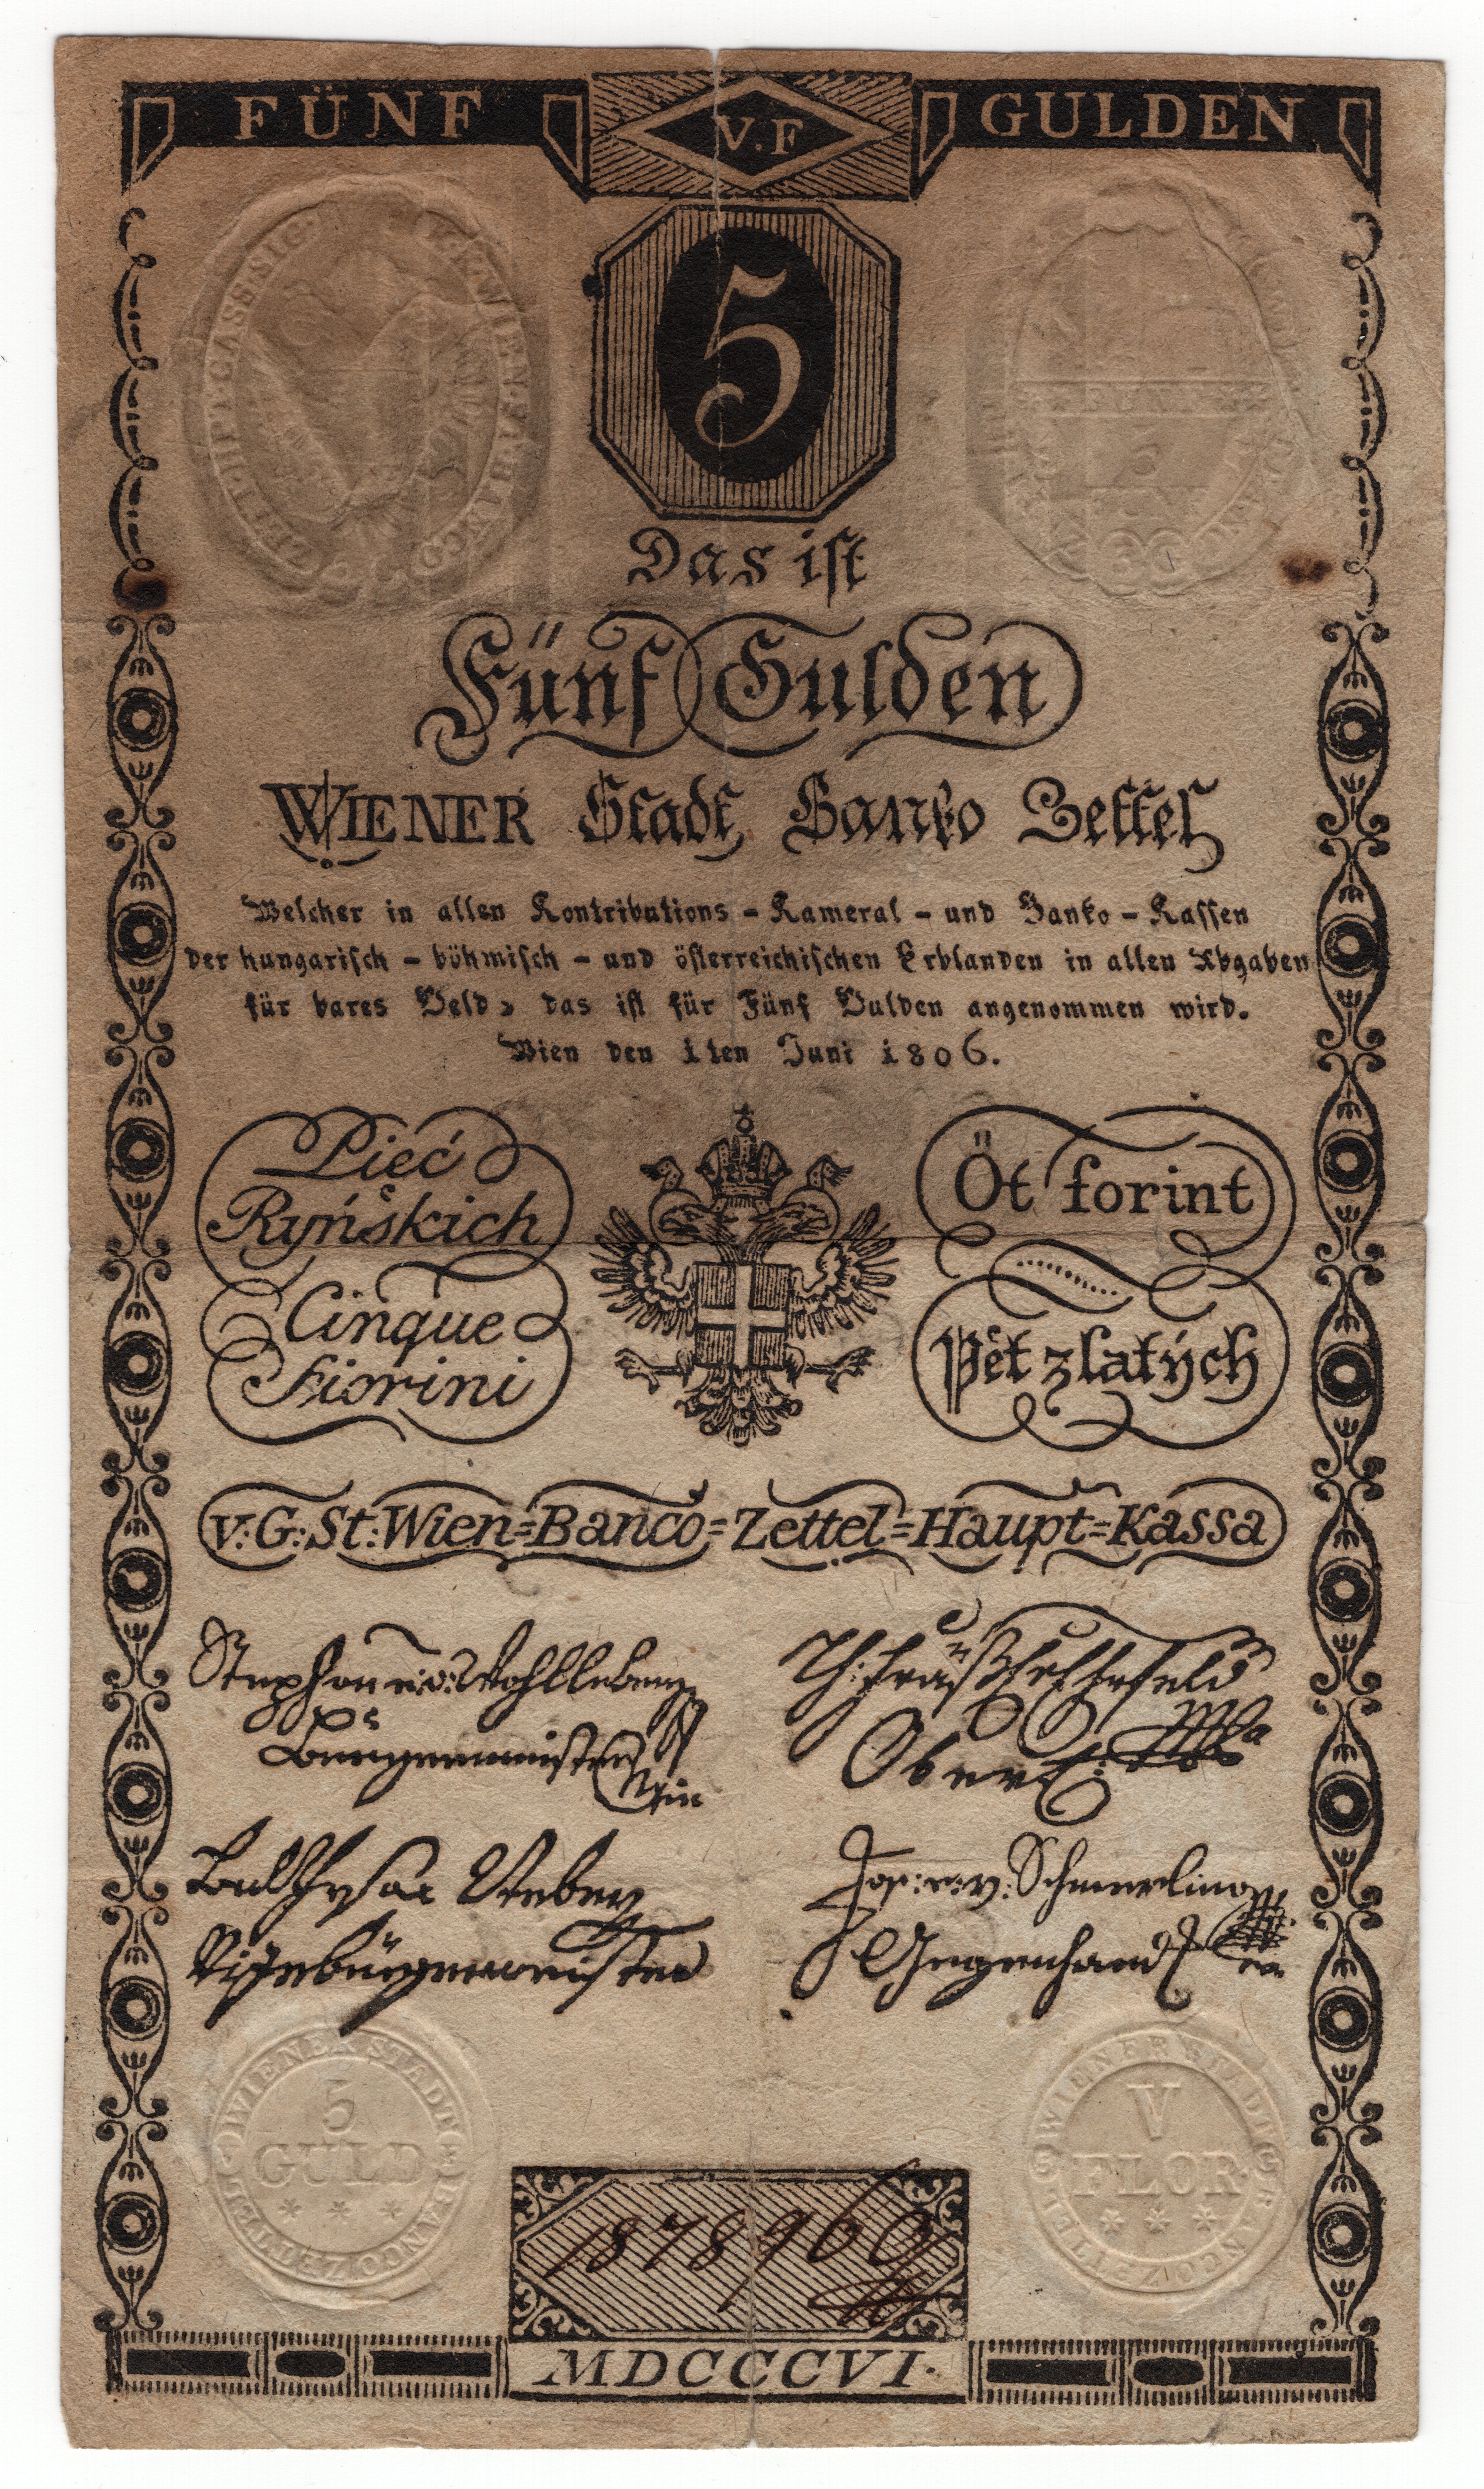 FÜNF V.F GULDEN
5
Das ist
Fünf Gulden
WIENER Stadt Banko Zettel
Welcher in allen Kontributions - Kameral - und Banko - Kassen
der hungarisch - böhmisch - und österreichischen Erblanden in allen Abgaben
für bares Geld, das ist für Fünf Gulden angenommen wird.
Wien den 1ten Juni 1806.
Pieć
Ryńskich
Cinque
Fiorini
Öt forint
Pět zlatých
V: G: St: Wien=Banco=Zettel=Haupt=Kassa
Stephan e: v: Wohlleben
Burgermeister
Balthasar
Vizebürgermeister
Jos: e: v: Schmerling
Gegenhand
WIENER STADT BANCO ZETTEL
5
GULD
WIENER STADT BANCO ZETTEL
V
FLOR
MDCCCVI.